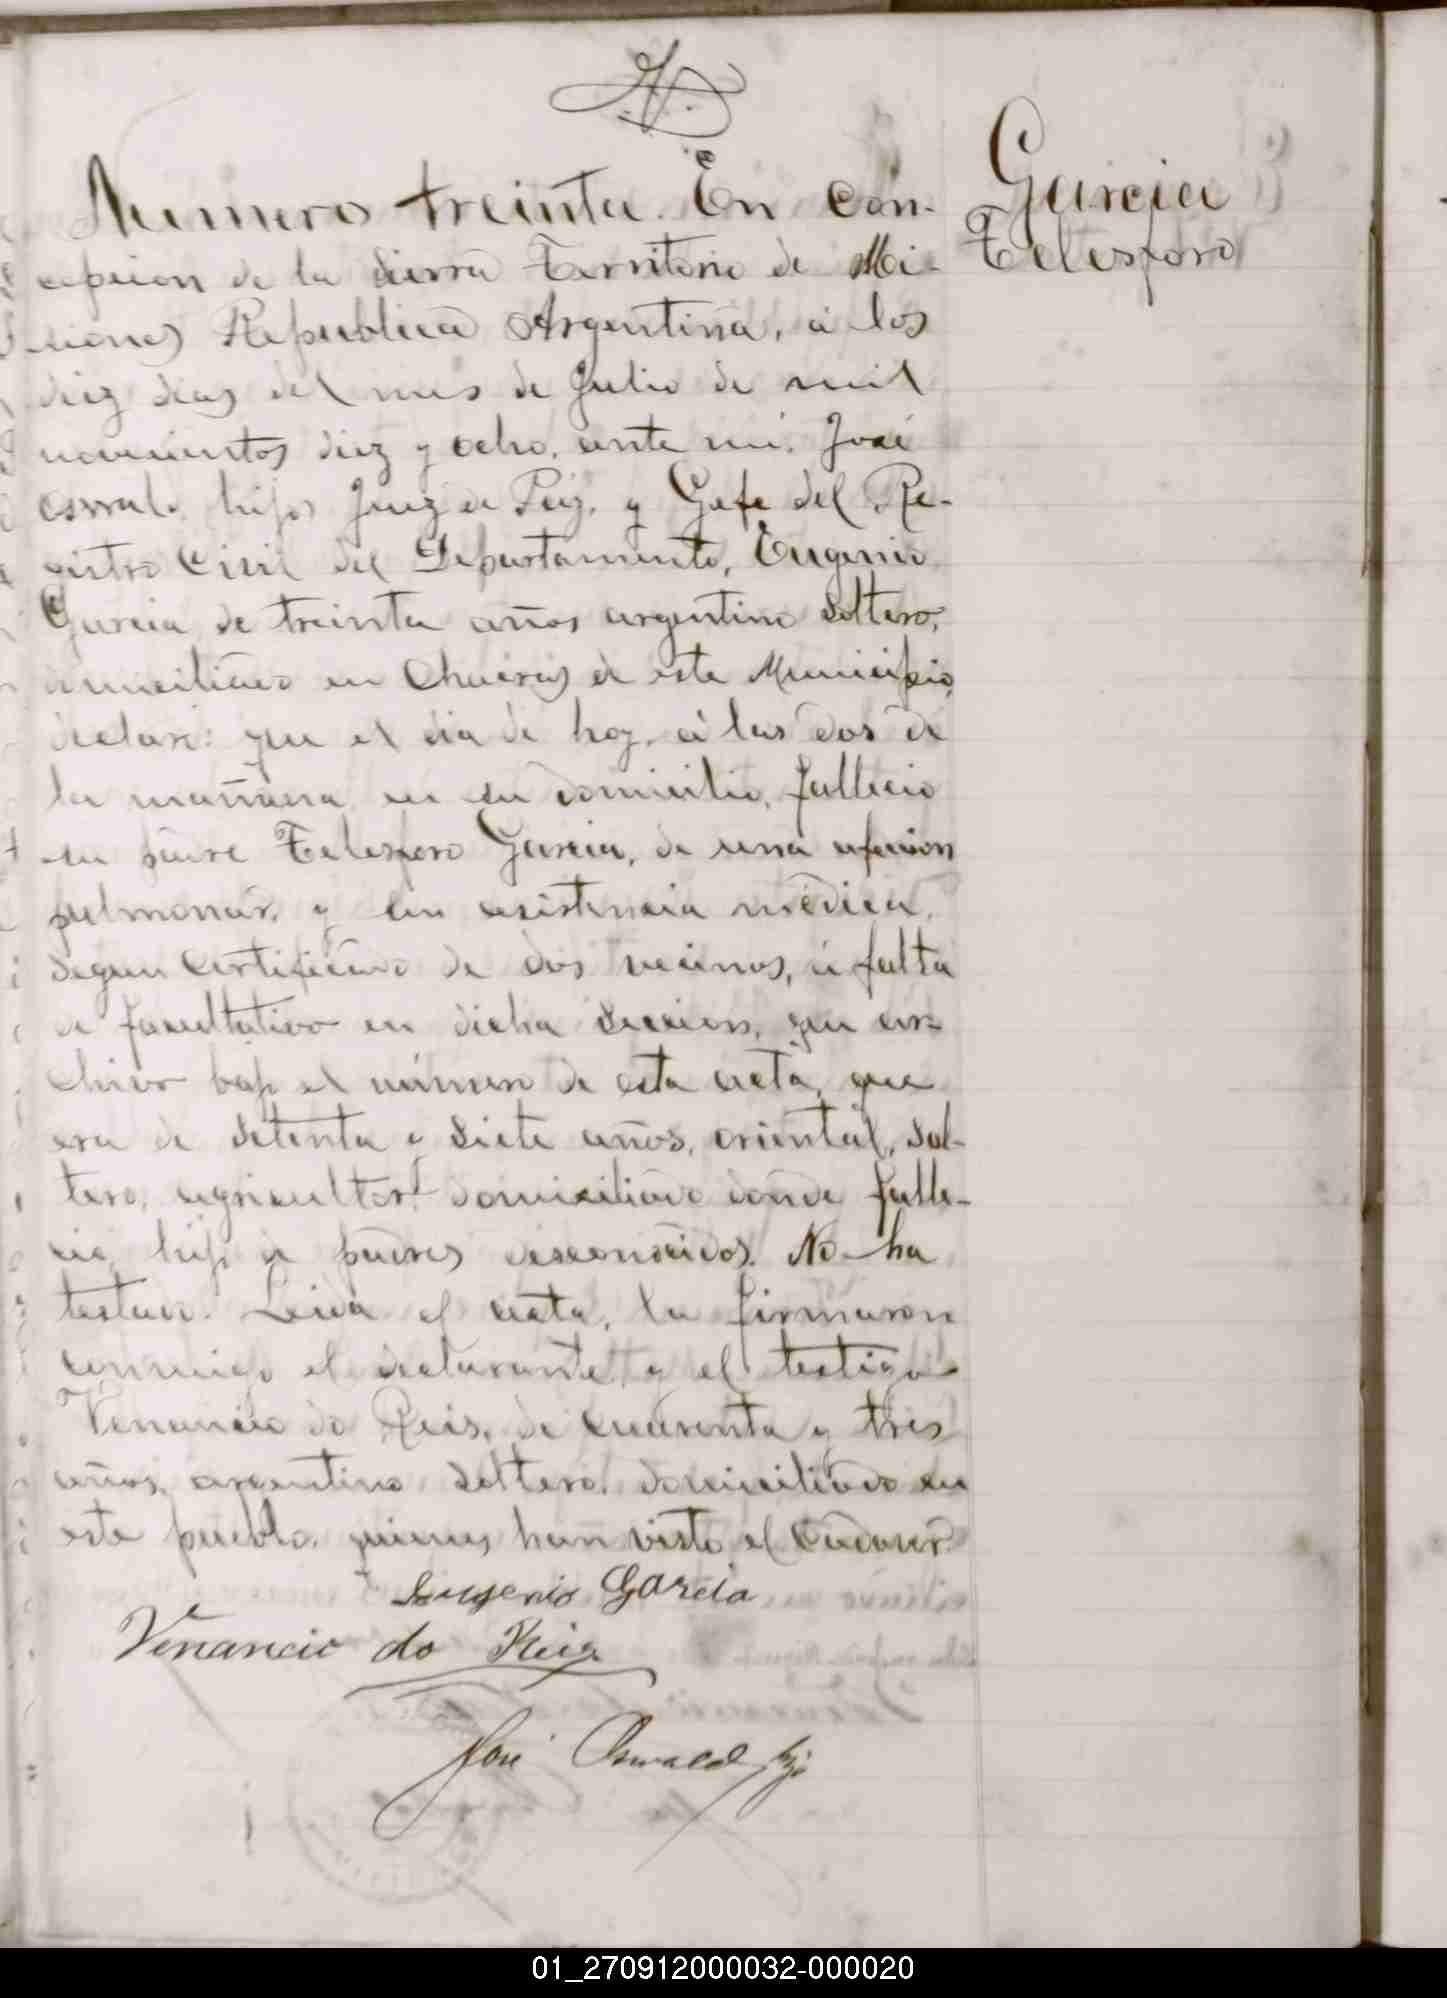 Garcia
Telesforo
Numero treinta. En Con-
cepcion de la Sierra Territorio de Mi-
siones Republica Argentina, á los
diez dias del mes de Julio de mil
novecientos diez y ocho, ante mi, José
Oswald hijo Juez de Paz, y Gefe del Re-
gistro Civil del Departamento, Eugenio
Garcia de treinta años argentino soltero,
domiciliado en Chacras de este Municipio,
declaró: que el dia de hoy, á las dos de
la mañana en su domicilio, fallecio
su padre Telesforo Garcia, de una afecion
pulmonar, y sin asistencia médica,
segun certificado de dos vecinos, á falta
de facultativo en dicha seccion, que ar-
chivo bajo el número de esta acta, que
era de setenta y siete años, oriental, sol-
tero, agricultor, domiciliado donde falle-
cio, hijo de padres desconocidos. No ha
testado. Leida el acta, la firmaron
conmigo el declarante, y el testigo
Venancio do Reis, de cuarenta y tres
años, argentino soltero, domiciliado en
este pueblo, quienes han visto el cadaver.
Eugenio Garcia
Venancio do Reis
José Oswald hijo
01_270912000032-000020